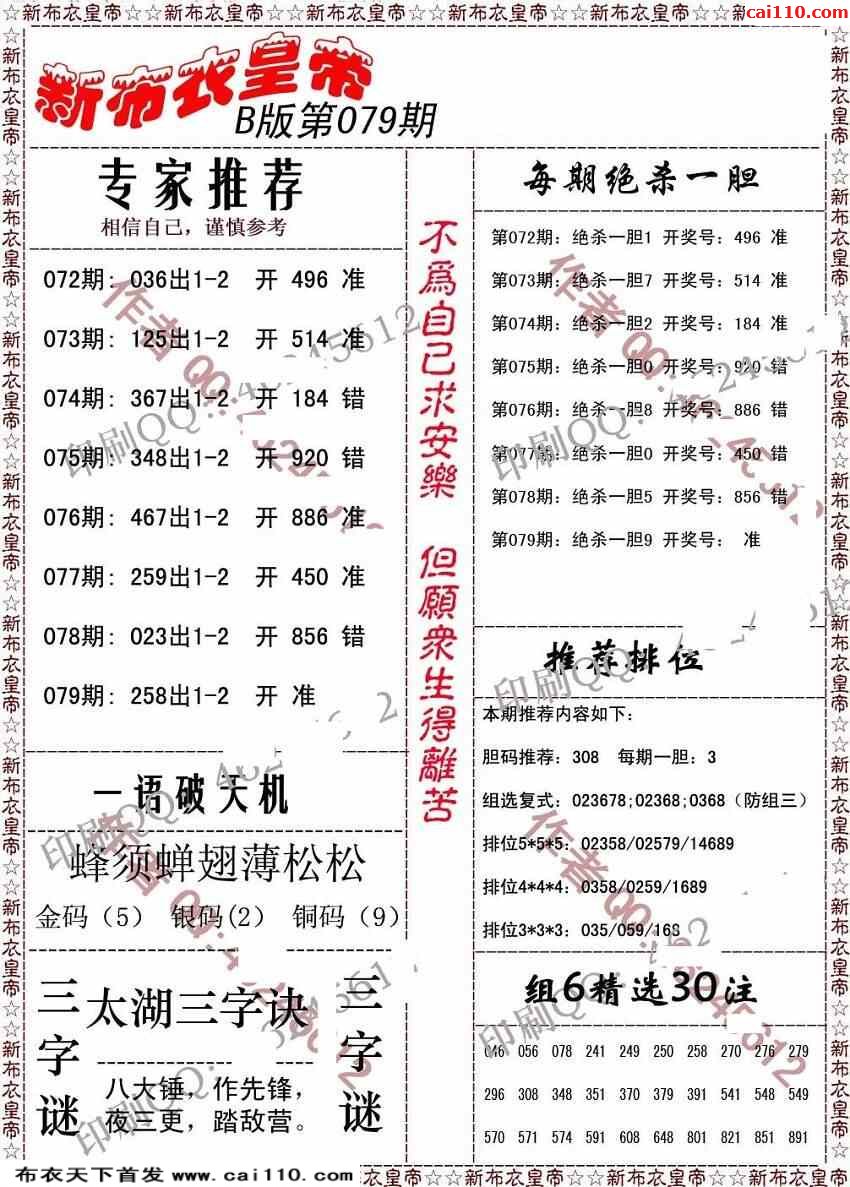 ☆新布衣皇帝☆☆新布衣皇帝☆☆新布衣皇帝☆☆新布衣皇帝☆☆新布衣皇帝☆☆新
cai110.com
新布衣皇帝
B版第079期
专家推荐
相信自己，谨慎参考
072期: 036出1-2 开 496 准
073期: 125出1-2 开 514 准
074期: 367出1-2 开 184 错
075期: 348出1-2 开 920 错
076期: 467出1-2 开 886 准
077期: 259出1-2 开 450 准
078期: 023出1-2 开 856 错
079期: 258出1-2 开 准
一语破天机
蜂须蝉翅薄松松
金码（5） 银码(2) 铜码（9）
三字谜
太湖三字诀
八大锤，作先锋，
夜三更，踏敌营。
三字谜
不爲自己求安樂 但願衆生得離苦
每期绝杀一胆
第072期: 绝杀一胆1 开奖号: 496 准
第073期: 绝杀一胆7 开奖号: 514 准
第074期: 绝杀一胆2 开奖号: 184 准
第075期: 绝杀一胆0 开奖号: 920 错
第076期: 绝杀一胆8 开奖号: 886 错
第077期: 绝杀一胆0 开奖号: 450 错
第078期: 绝杀一胆5 开奖号: 856 错
第079期: 绝杀一胆9 开奖号: 准
推荐排位
本期推荐内容如下:
胆码推荐: 308 每期一胆: 3
组选复式: 023678;02368;0368（防组三）
排位5*5*5: 02358/02579/14689
排位4*4*4: 0358/0259/1689
排位3*3*3: 035/059/168
组6精选30注
046 056 078 241 249 250 258 270 276 279
296 308 348 351 370 379 391 541 548 549
570 571 574 591 608 648 801 821 851 891
布衣天下首发 www.cai110.com